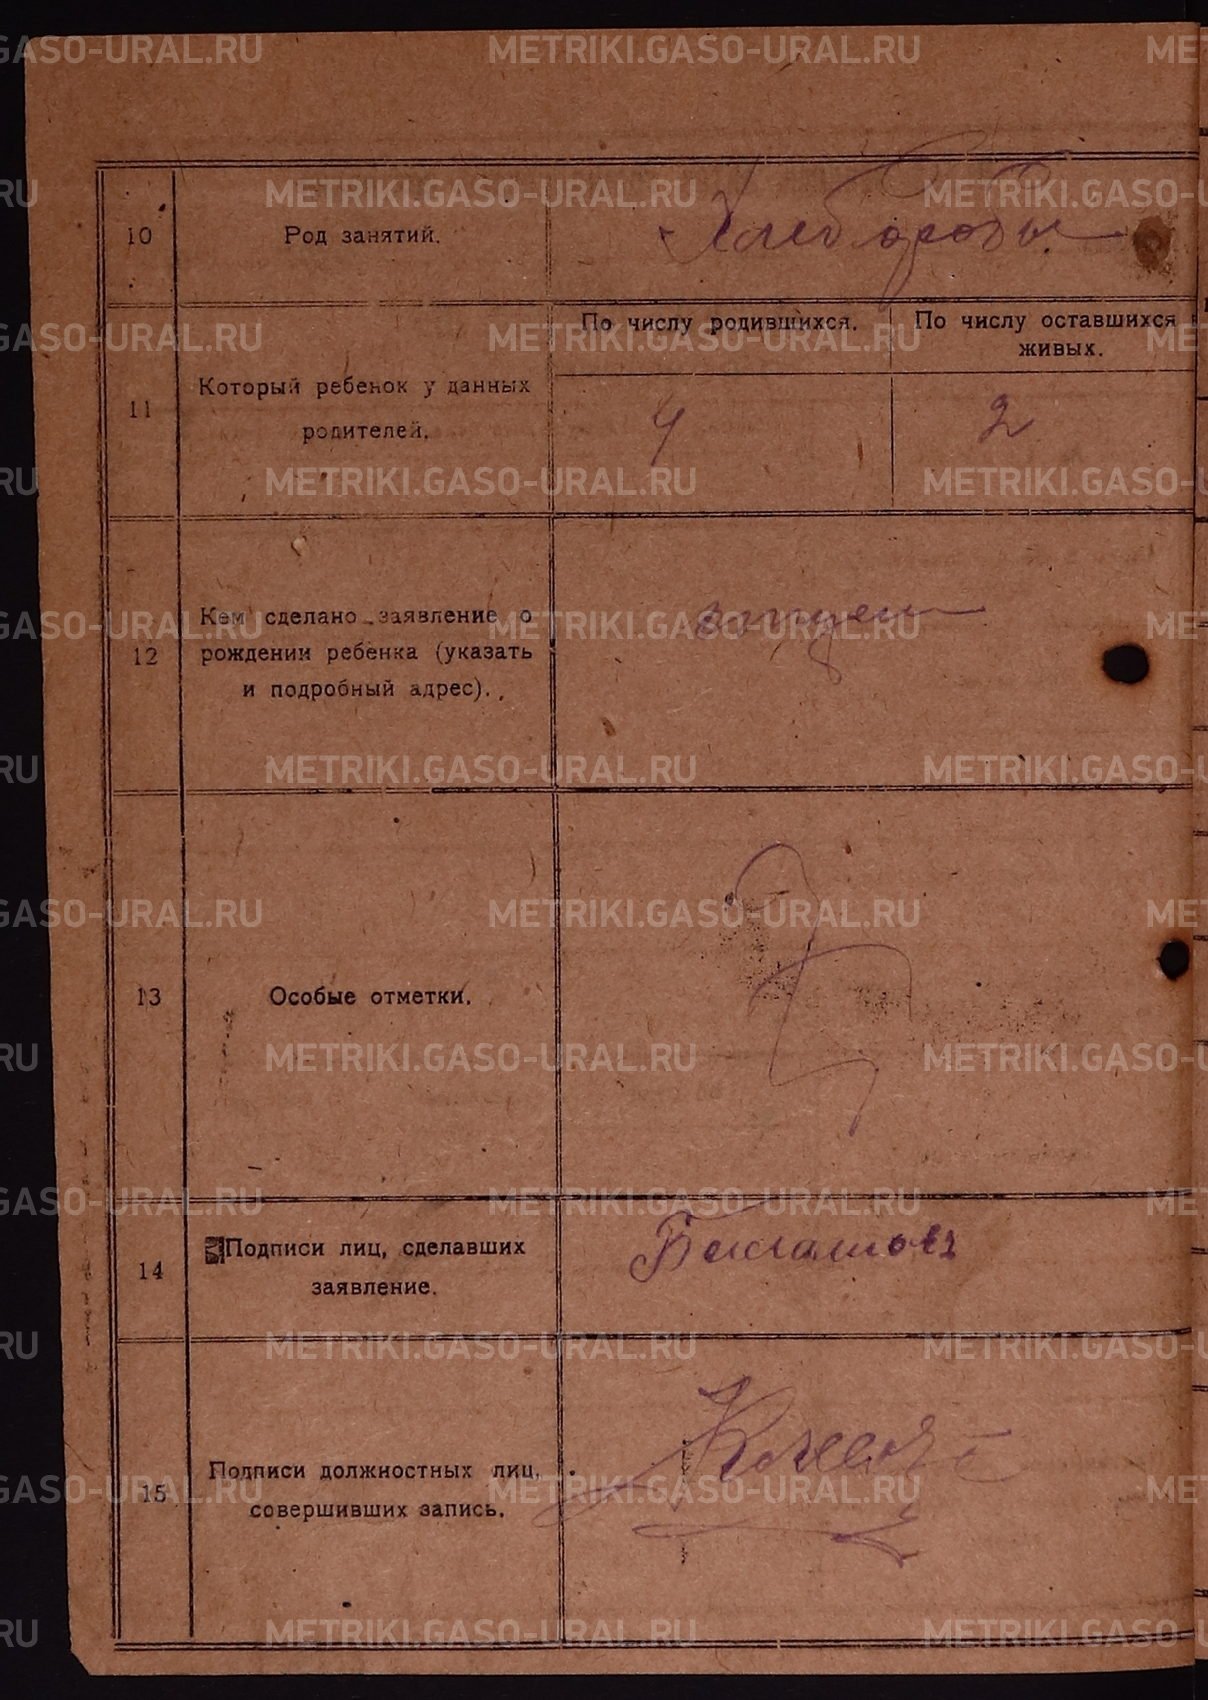 METRIKI.GASO-URAL.RU
10
Род занятий.
Хлеборобы
11
Который ребенок у данных
родителей.
По числу родившихся.
По числу оставшихся
живых.
4
2
12
Кем сделано заявление о
рождении ребенка (указать
и подробный адрес).
отцем
13
Особые отметки.
14
Подписи лиц, сделавших
заявление.
15
Подписи должностных лиц,
совершивших запись.